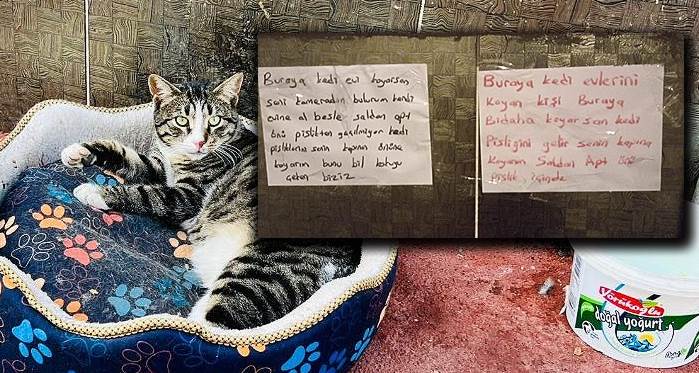 Buraya kedi evi koyarsan
seni kameradan bulurum kendi
evine al besle saldan apt
önü pislikten geçilmiyor kedi
pisliklerini senin kapının önüne
koyarım bunu bil kokuyu
çeken biziz
Buraya kedi evlerini
koyan kişi Buraya
Bidaha koyarsan kedi
Pisliğini getir senin kapına
koyarım Saldan Apt önü
Pislik içinde
Yörükoğlu
doğal yoğurt